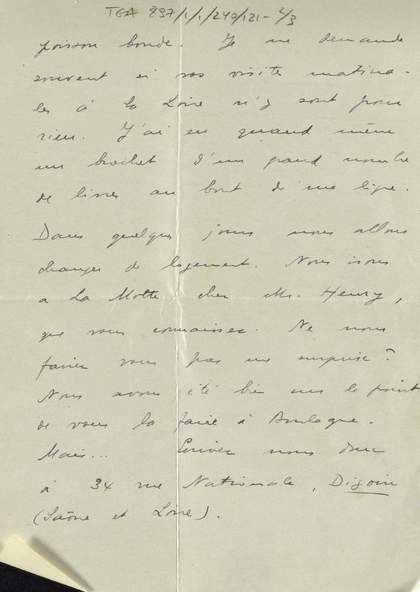 TGA 897/1/1/240/121-2/3
poisson boude. Je me demande
souvent si vos visites matina-
les à la Loire n'y sont pour
rien. J'ai eu quand même
un brochet d'un grand nombre
de livres au bout de ma ligne.
Dans quelques jours nous allons
changer de logement. Nous irons
a La Motte chez Mr. Henry,
que vous connaissez. Ne nous
feriez vous pas une surprise?
Nous avons été bien sur le point
de vous la faire à Boulogne.
Mais... Ecrivez nous donc
à 34 rue Nationale, Digoin
(Saône et Loire).